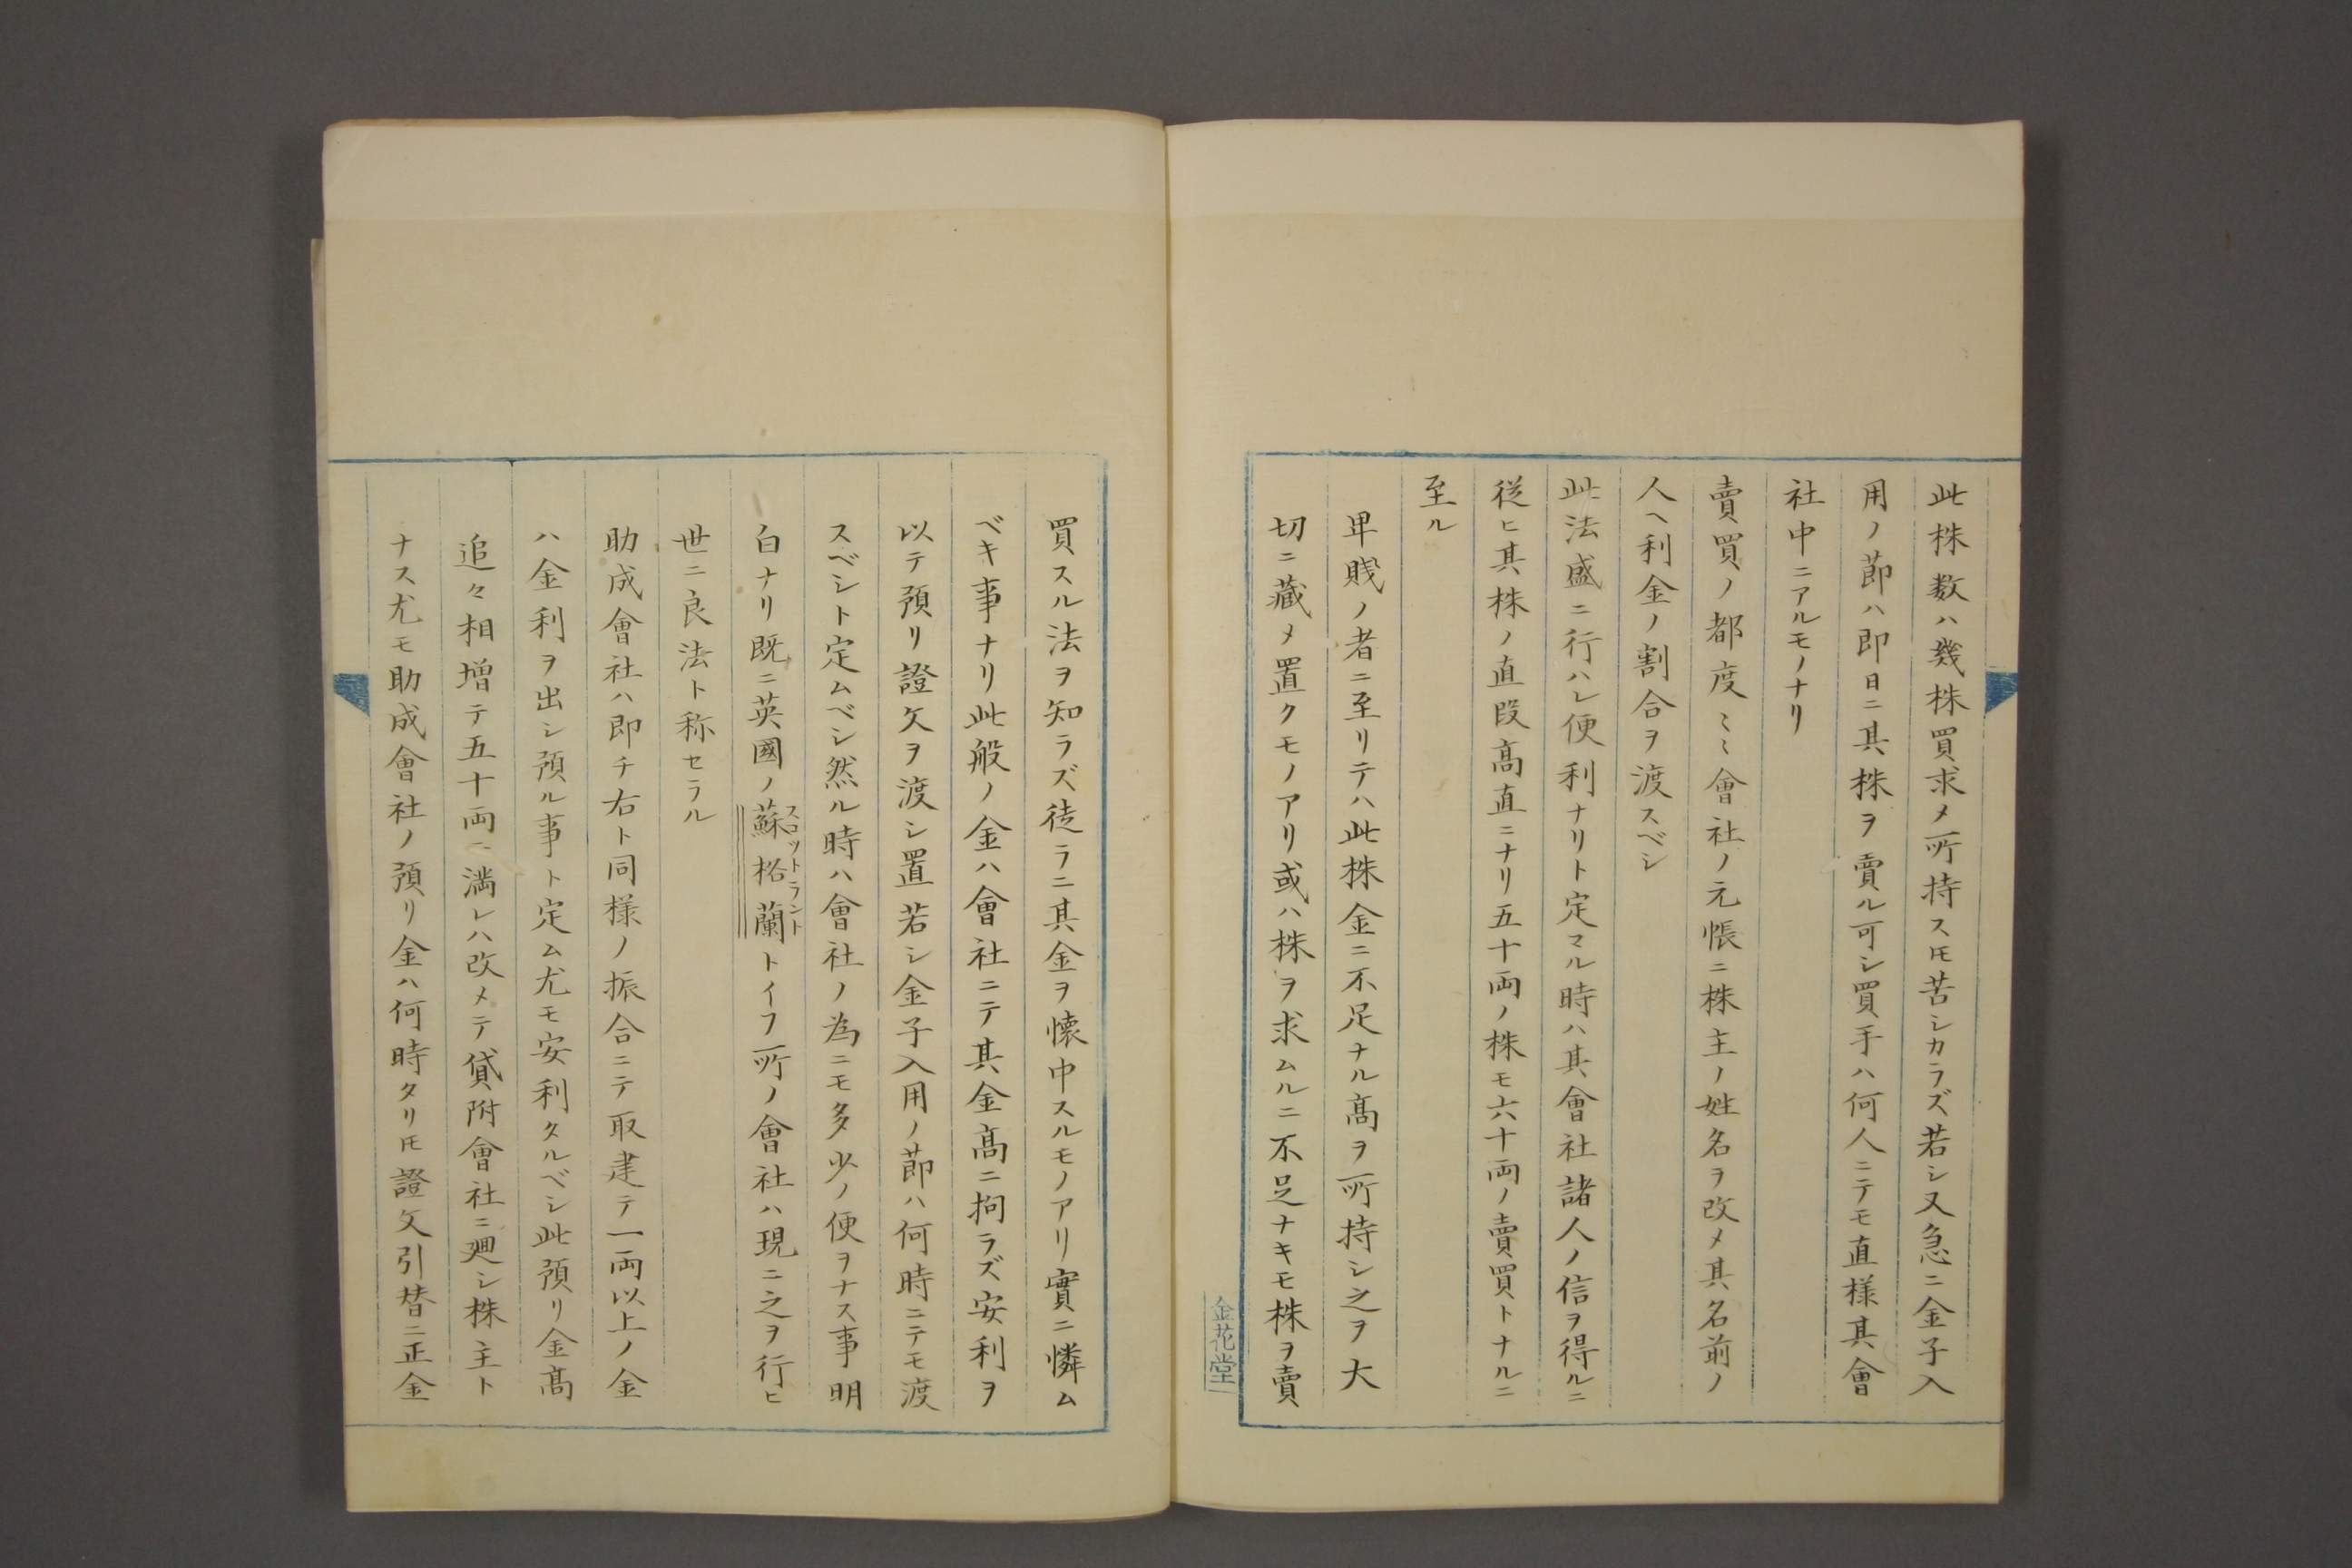 此株数ハ幾株買求メ所持スㇳモ苦シカラズ若シ又急ニ金子入
用ノ節ハ即日ニ其株ヲ賣ル可シ買手ハ何人ニテモ直様其會
社中ニアルモノナリ
賣買ノ都度〻〻會社ノ元帳ニ株主ノ姓名ヲ改メ其名前ノ
人ヘ利金ノ割合ヲ渡スベシ
此法盛ニ行ハレ便利ナリト定マル時ハ其會社諸人ノ信ヲ得ルニ
従ヒ其株ノ直段高直ニナリ五十両ノ株モ六十両ノ賣買トナルニ
至ル
卑賎ノ者ニ至リテハ此株金ニ不足ナル髙ヲ所持シ之ヲ大
切ニ藏メ置クモノアリ或ハ株ヲ求ムルニ不足ナキモ株ヲ賣
金花堂
買スル法ヲ知ラズ徒ラニ其金ヲ懐中スルモノアリ實ニ憐ム
ベキ事ナリ此般ノ金ハ會社ニテ其金髙ニ拘ラズ安利ヲ
以テ預リ證文ヲ渡シ置若シ金子入用ノ節ハ何時ニテモ渡
スベシト定ムベシ然ル時ハ會社ノ為ニモ多少ノ便ヲナス事明
白ナリ既ニ英國ノ蘇格蘭トイフ所ノ會社ハ現ニ之ヲ行ヒ
スコットラント
世ニ良法ト称セラル
助成會社ハ即チ右ト同様ノ振合ニテ取建テ一両以上ノ金
ハ金利ヲ出シ預ル事ト定ム尤モ安利タルベシ此預リ金髙
追々相増テ五十両ニ満レハ改メテ貸附會社ニ廻シ株主ト
ナス尤モ助成會社ノ預リ金ハ何時タリㇳモ證文引替ニ正金